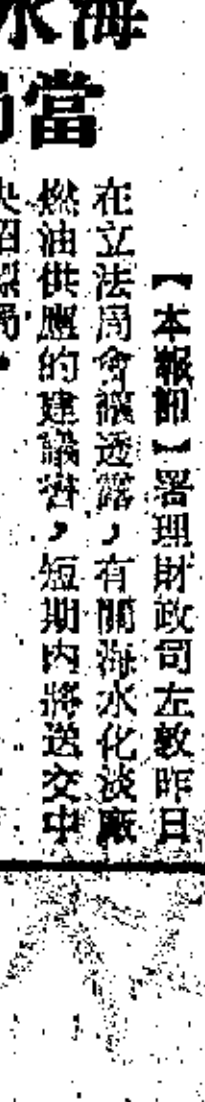 海水
當局
【本報訊】署理財政司左敦昨日
在立法局會議透露，有關海水化淡廠
燃油供應的建議書，短期內將送交中
央招標局。